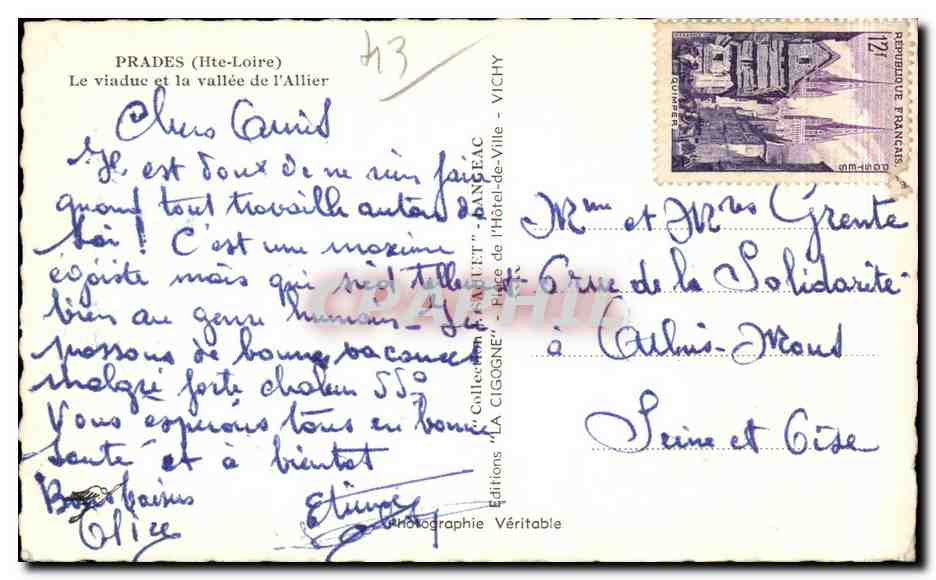 PRADES (Hte-Loire)
Le viaduc et la vallée de l'Allier
43
Chers Amis
Il est doux de ne rien faire
quand tout travaille autour de
soi ! C'est une maxime
égoiste mais qui sied tellement
bien au genre humain - Je
passons de bonnes vacances
malgré forte chaleur 55°
Vous espérons tous en bonne
santé et à bientot
Bons baisers
Alice
Etienne
Collection "SAQUET" - LANGEAC
Editions "LA CIGOGNE" - Place de l'Hôtel-de-Ville - VICHY
Photographie Véritable
12f
RÉPUBLIQUE FRANÇAISE
POSTES
QUIMPER
Mme et Mres Grente
6 rue de la Solidarité
à Athis-Mons
Seine et Oise